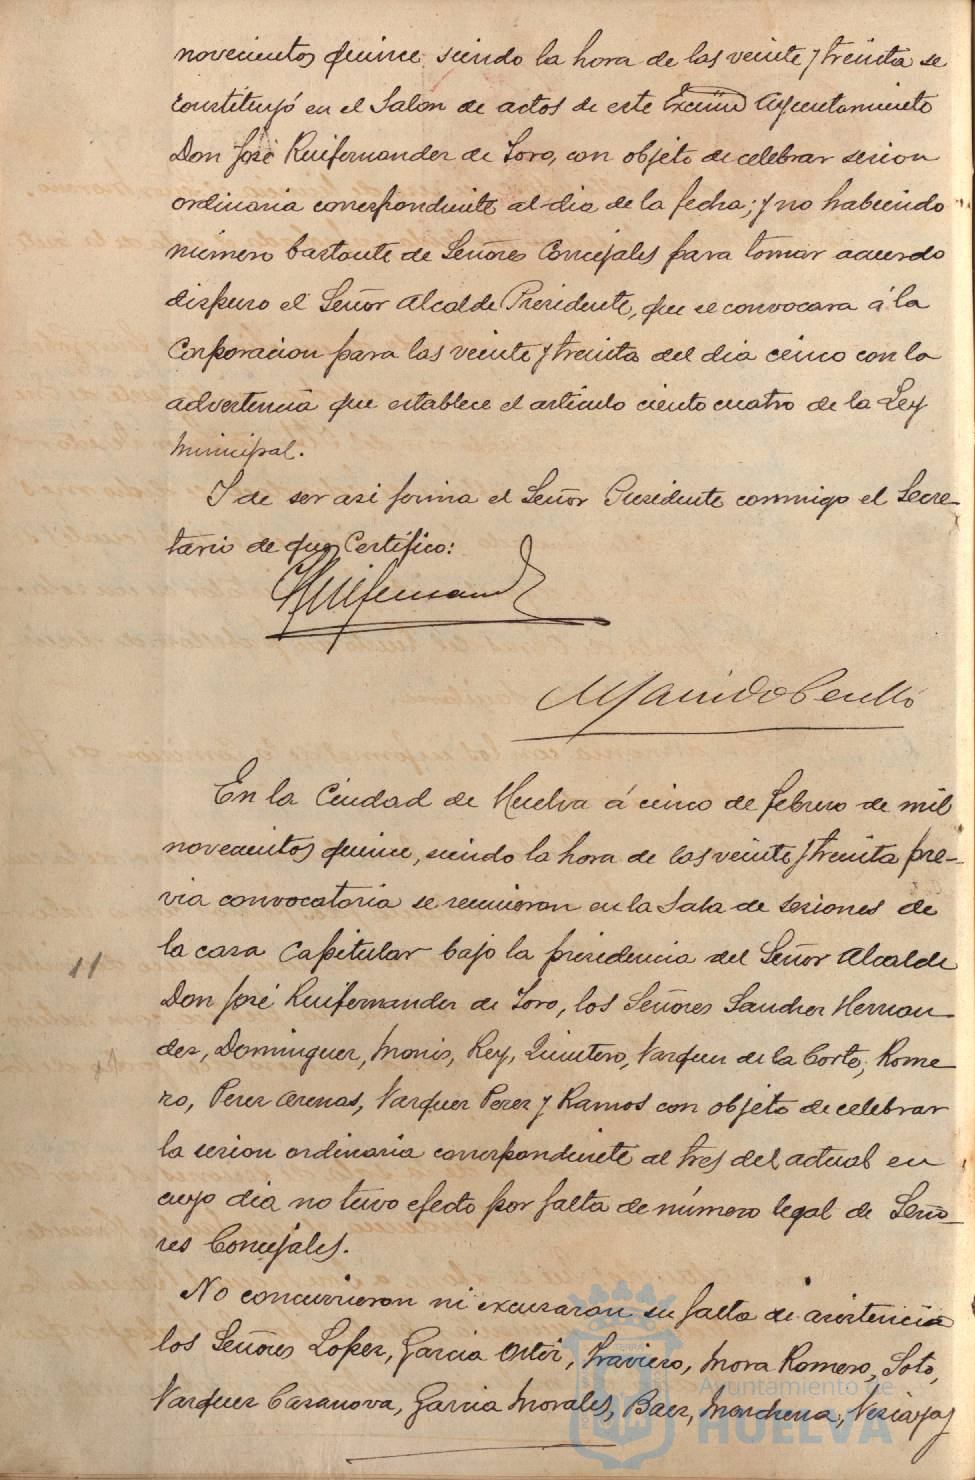 novecientos quince, siendo la hora de las veinte y treinta se
constituyó en el Salon de actos de este Excmo Ayuntamiento
Don José Ruifernandez de Toro, con objeto de celebrar sesion
ordinaria correspondiente al dia de la fecha; y no habiendo
número bastante de Señores Concejales para tomar acuerdo
dispuso el Señor Alcalde Presidente, que se convocara á la
Corporacion para las veinte y treinta del dia cinco con la
advertencia que establece el articulo ciento cuatro de la Ley
Municipal.
Y de ser asi firma el Señor Presidente conmigo el Secre-
tario de que Certifico:
En la Ciudad de Huelva á cinco de febrero de mil
novecientos quince, siendo la hora de las veinte y treinta pré-
via convocatoria se reunieron en la Sala de sesiones de
la casa Capitular bajo la presidencia del Señor Alcalde
11
Don José Ruifernandez de Toro, los Señores Sanchez Hernan-
dez, Dominguez, Monis, Rey, Quintero, Vazquez de la Corte, Rome-
ro, Perez Arenas, Vazquez Perez y Ramos con objeto de celebrar
la sesion ordinaria correspondiente al tres del actual en
cuyo dia no tuvo efecto por falta de número legal de Seño-
res Concejales.
No concurrieron ni excusaron su falta de asistencia
los Señores Lopez, Garcia Ortiz, Traviero, Mora Romero, Soto,
Vazquez Casanova, Garcia Morales, Baez, Marchena,
Ayuntamiento de
HUELVA